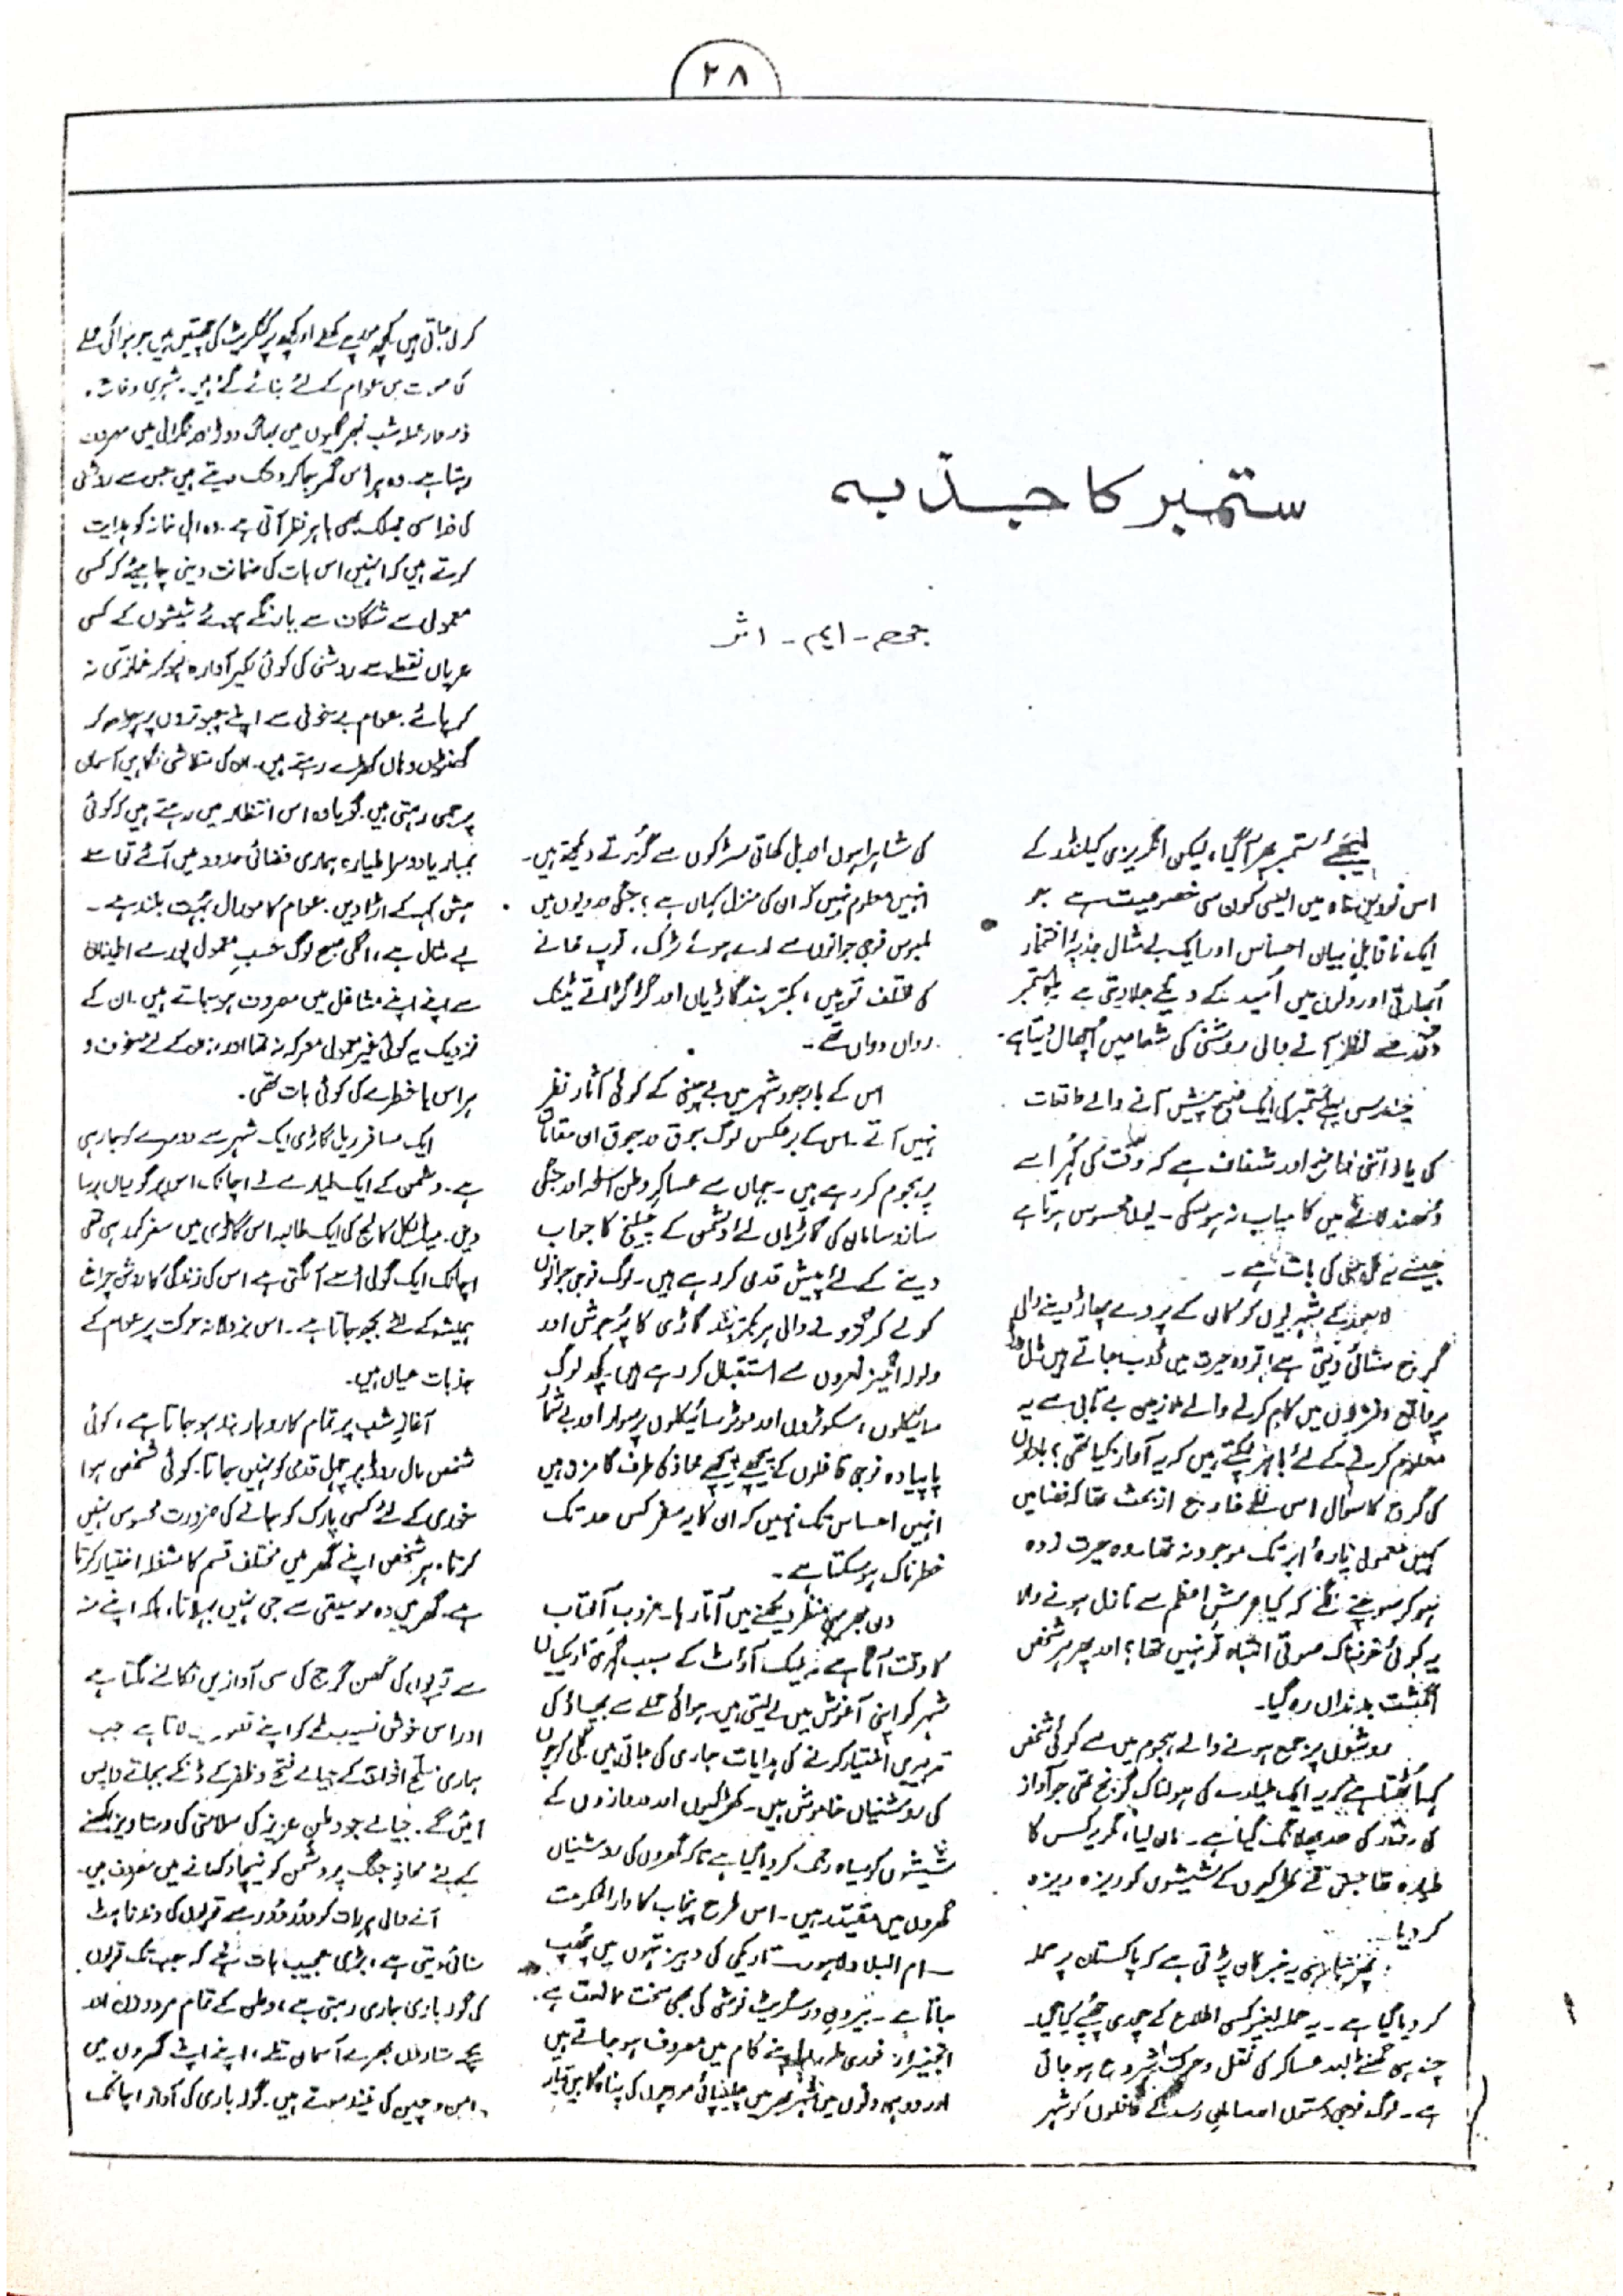 ۲۸
ستمبر کا جذبہ
جی - ایم - اثر
لیجئے ستمبر پھر آگیا، لیکن انگریزی کیلنڈر کے
اس نویں ماہ میں ایسی کون سی خصوصیت ہے جو
ایک ناقابلِ بیان احساس اور ایک بے مثال جذبۂ افتخار
اُبھارتی اور دلوں میں اُمید کے دیئے جلا دیتی ہے ستمبر
نظر آنے والی روشنی کی شعاعیں اُچھال دیتا ہے۔
چند برس پہلے ستمبر کی ایک صبح پیش آنے والے واقعات
کی یاد اتنی واضح اور شفاف ہے کہ وقت کی گہر اسے
دُھندلانے میں کامیاب نہ ہو سکی۔ یوں محسوس ہوتا ہے
جیسے یہ کل ہی کی بات ہے۔
لاہور کے شہریوں کو کان کے پردے پھاڑ دینے والی
گرج سنائی دیتی ہے، تو وہ حیرت میں ڈوب جاتے ہیں مال روڈ
پر واقع دفتروں میں کام کرنے والے ملازمین بے تابی سے یہ
معلوم کرنے کے لئے باہر لپکتے ہیں کہ یہ آواز کیا تھی؟ بادلوں
کی گرج کا سوال اس لئے خارج از بحث تھا کہ فضا میں
کہیں معمولی پارۂ ابر تک موجود نہ تھا۔ وہ حیرت زدہ
ہو کر سوچنے لگے کہ کیا عرشِ اعظم سے نازل ہونے والا
یہ کوئی خوفناک صوتی انتباہ تو نہیں تھا؟ اور پھر ہر شخص
انگشت بدنداں رہ گیا۔
روشوں پر جمع ہونے والے ہجوم میں سے کوئی شخص
کہہ اُٹھتا ہے کہ یہ ایک طیارے کی ہولناک گرج تھی جو آواز
کی رفتار کی حد پھلانگ گیا ہے۔ مان لیا، مگر یہ کس کا
طیارہ تھا جس نے کھڑکیوں کے شیشوں کو ریزہ ریزہ
کر دیا۔
پھر یہ خبر کان پڑتی ہے کہ پاکستان پر حملہ
کر دیا گیا ہے۔ یہ حملہ بغیر کسی اطلاع کے چوری چھپے کیا گیا۔
چند ہی گھنٹے بعد عساکر کی نقل و حرکت شروع ہو جاتی
ہے۔ لوگ فوجی دستوں اور سامانِ رسد کے قافلوں کو شہر
کی شاہراہوں اور بل کھاتی سڑکوں سے گزرتے دیکھتے ہیں۔
انہیں معلوم نہیں کہ ان کی منزل کہاں ہے؟ جنگی وردیوں میں
ملبوس فوجی جوانوں سے لدے ہوئے ٹرک، توپ خانے
کی مختلف توپیں، بکتر بند گاڑیاں اور گڑگڑاتے ٹینک
رواں دواں تھے۔
اس کے باوجود شہر میں بے چینی کے کوئی آثار نظر
نہیں آتے۔ اس کے برعکس لوگ جوق در جوق ان مقامات
پر ہجوم کر رہے ہیں۔ جہاں سے عساکرِ وطن اسلحہ اور جنگی
ساز و سامان کی گاڑیاں لئے دشمن کے چیلنج کا جواب
دینے کے لئے پیش قدمی کر رہے ہیں۔ لوگ فوجی جوانوں
کو لے کر گزرنے والی ہر بکتر بند گاڑی کا پُر جوش اور
ولولہ انگیز نعروں سے استقبال کر رہے ہیں۔ کچھ لوگ
سائیکلوں، سکوٹروں اور موٹر سائیکلوں پر سوار اور بے شمار
پا پیادہ فوجی قافلوں کے پیچھے پیچھے محاذ کی طرف گامزن ہیں
انہیں احساس تک نہیں کہ ان کا یہ سفر کس حد تک
خطرناک ہو سکتا ہے۔
دن بھر یہی منظر دیکھنے میں آتا رہا۔ غروبِ آفتاب
کا وقت آتا ہے بلیک آؤٹ کے سبب گہری تاریکیاں
شہر کو اپنی آغوش میں لے لیتی ہیں۔ ہوائی حملے سے بچاؤ کی
تدبیریں اختیار کرنے کی ہدایات جاری کی جاتی ہیں۔ گلی کوچوں
کی روشنیاں خاموش ہیں۔ کھڑکیوں اور دروازوں کے
شیشوں کو سیاہ رنگ کر دیا گیا ہے تاکہ گھروں کی روشنیاں
گھروں میں مقید رہیں۔ اس طرح پنجاب کا دارالحکومت
ام البلاد لاہور تاریکی کی دبیز تہوں میں چھپ
جاتا ہے۔ بیرونِ در سگریٹ نوشی کی بھی سخت ممانعت ہے۔
انجینئرز فوری طور پر اپنے کام میں مصروف ہو جاتے ہیں
اور دو ہی دنوں میں شہر بھر میں پناہ گاہیں تیار
کر لی جاتی ہیں۔ کچھ مورچے کھلے اور کچھ پر کنکریٹ کی چھتیں ہیں جو ہوائی حملے
کی صورت میں عوام کے لئے بنائے گئے ہیں۔ شہری دفاع
ذمہ دار عملہ شب بھر گلیوں میں بھاگ دوڑ اور نگرانی میں مصروف
رہتا ہے۔ وہ ہر اس گھر جا کر دستک دیتے ہیں جس سے روشنی
کی ذرا سی جھلک بھی باہر نظر آتی ہے۔ وہ اہلِ خانہ کو ہدایت
کرتے ہیں کہ انہیں اس بات کی ضمانت دینی چاہیئے کہ کسی
معمولی سے شگاف سے یا رنگے ہوئے شیشوں کے کسی
عریاں نقطے سے روشنی کی کوئی لکیر آوارہ ہو کر غمازی نہ
کر پائے۔ عوام بے خوفی سے اپنے چبوتروں پر چڑھ کر
گھنٹوں وہاں کھڑے رہتے ہیں۔ ان کی متلاشی نگاہیں آسمان
پر جمی رہتی ہیں۔ گویا وہ اس انتظار میں رہتے ہیں کہ کوئی
بمبار یا دوسرا طیارہ ہماری فضائی حدود میں آئے تو اسے
ہش کہہ کے اڑا دیں۔ عوام کا مورال بہت بلند ہے۔
بے مثال ہے، اگلی صبح لوگ حسبِ معمول پورے اطمینان
سے اپنے اپنے مشاغل میں مصروف ہو جاتے ہیں۔ ان کے
نزدیک یہ کوئی غیر معمولی معرکہ نہ تھا اور نہ ان کے لئے خوف و
ہراس یا خطرے کی کوئی بات تھی۔
ایک مسافر ریل گاڑی ایک شہر سے دوسرے کو جا رہی
ہے۔ دشمن کے ایک طیارے نے اچانک اس پر گولیاں برسا
دیں۔ میڈیکل کالج کی ایک طالبہ اس گاڑی میں سفر کر رہی تھی
اچانک ایک گولی اُسے آ لگتی ہے اس کی زندگی کا روشن چراغ
ہمیشہ کے لئے بجھ جاتا ہے۔ اس بزدلانہ حرکت پر عوام کے
جذبات عیاں ہیں۔
آغازِ شب پر تمام کاروبار بند ہو جاتا ہے، کوئی
شخص مال روڈ پر چہل قدمی کو نہیں جاتا۔ کوئی شخص ہوا
خوری کے لئے کسی پارک کو جانے کی ضرورت محسوس نہیں
کرتا۔ ہر شخص اپنے گھر میں مختلف قسم کا مشغلہ اختیار کرتا
ہے۔ گھر میں وہ موسیقی سے جی نہیں بہلاتا، بلکہ اپنے منہ
سے توپوں کی گھن گرج کی سی آوازیں نکالنے لگتا ہے
اور اس خوش نصیب لمحے کو اپنے تصور میں لاتا ہے جب
ہماری مسلح افواج کے جیالے فتح و ظفر کے ڈنکے بجاتے واپس
آئیں گے۔ جیالے جو وطنِ عزیز کی سلامتی کی دستاویز لکھنے
کے لئے محاذِ جنگ پر دشمن کو نیچا دکھانے میں مصروف ہیں۔
آنے والی ہر رات کو دُور دُور سے توپوں کی دندناہٹ
سنائی دیتی ہے، بڑی عجیب بات ہے کہ جب تک توپوں
کی گولہ باری جاری رہتی ہے، وطن کے تمام مرد و زن اور
بچے ستاروں بھرے آسمان تلے، اپنے اپنے گھروں میں
امن و چین کی نیند سوتے ہیں۔ گولہ باری کی آواز اچانک